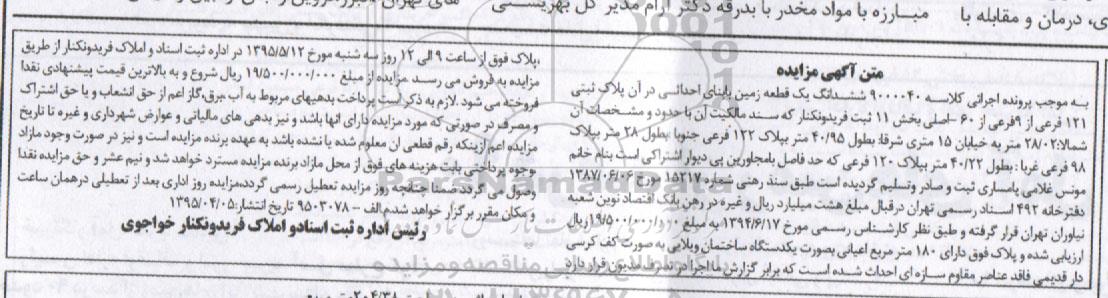 ی، درمان و مقابله با
مبارزه با مواد مخدر با بدرقه دکتر آرام مدیر کل بهزیستی
متن آگهی مزایده
به موجب پرونده اجرائی کلاسه ۹۰۰۰۰۴۰ ششدانگ یک قطعه زمین بابنای احداثی در آن پلاک ثبتی
۱۲۱ فرعی از ۹فرعی از ۶۰ -اصلی بخش ۱۱ ثبت فریدونکنار که سند مالکیت آن با حدود و مشخصات آن
شمالا:۲۸/۰۲ متر به خیابان ۱۵ متری شرقا: بطول ۴۰/۹۵ متر بپلاک ۱۲۲ فرعی جنوبا بطول ۲۸ متر بپلاک
۹۸ فرعی غربا : بطول ۴۰/۲۲ متر بپلاک ۱۲۰ فرعی که حد فاصل بامجاورین پی دیوار اشتراکی است بنام خانم
مونس غلامی پامساری ثبت و صادر وتسلیم گردیده است طبق سند رهنی شماره ۱۵۲۱۷ مورخ ۱۳۸۷/۰۶/۰۶
دفترخانه ۴۹۲ اسناد رسمی تهران درقبال مبلغ هشت میلیارد ریال و غیره در رهن بانک اقتصاد نوین شعبه
نیاوران تهران قرار گرفته و طبق نظر کارشناس رسمی مورخ ۱۳۹۴/۶/۱۷ به مبلغ ۱۹/۵۰۰/۰۰۰/۰۰۰ریال
ارزیابی شده و پلاک فوق دارای ۱۸۰ متر مربع اعیانی بصورت یکدستگاه ساختمان ویلایی به صورت کف کرسی
دار قدیمی فاقد عناصر مقاوم سازه ای احداث شده است که برابر گزارش مامور اجرا در تصرف مدیون قرار دارد
،پلاک فوق از ساعت ۹ الی ۱۲ روز سه شنبه مورخ ۱۳۹۵/۵/۱۲ در اداره ثبت اسناد و املاک فریدونکنار از طریق
مزایده به فروش می رسد .مزایده از مبلغ ۱۹/۵۰۰/۰۰۰/۰۰۰ ریال شروع و به بالاترین قیمت پیشنهادی نقدا
فروخته می شود .لازم به ذکر است پرداخت بدهیهای مربوط به آب ،برق،گاز اعم از حق انشعاب و یا حق اشتراک
و مصرف در صورتی که مورد مزایده دارای انها باشد و نیز بدهی های مالیاتی و عوارض شهرداری و غیره تا تاریخ
مزایده اعم ازینکه رقم قطعی ان معلوم شده یا نشده باشد به عهده برنده مزایده است و نیز در صورت وجود مازاد
توجوه پرداختی بابت هزینه های فوق از محل مازاد برنده مزایده مسترد خواهد شد و نیم عشر و حق مزایده نقدا
وصول می گردد.ضمنا چنانچه روز مزایده تعطیل رسمی گردد،مزایده روز اداری بعد از تعطیلی درهمان ساعت
و مکان مقرر برگزار خواهد شد.م/الف – ۹۵۰۳۰۷۸ تاریخ انتشار:۱۳۹۵/۰۴/۰۵
رئیس اداره ثبت اسنادو املاک فریدونکنار خواجوی
ParsNamadData